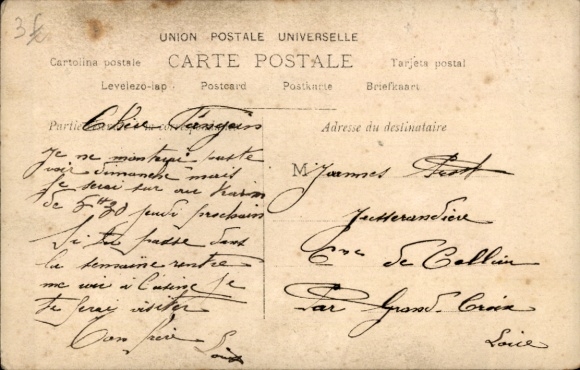 3f
UNION POSTALE UNIVERSELLE
CARTE POSTALE
Cartolina postale
Tarjeta postal
Levelező-lap Postcard Postkarte Briefkaart
Adresse du destinataire
Partie
Chère
Je ne
voir dimanche mais
je serai sur
de 5h30 jeudi prochain
Si tu passe dans
la semaine rentre
me voir à l'usine je
te ferai visiter
Ton frère
M Joannes
Jusserandière
Cne de Cellieu
Par Grand-Croix
Loire